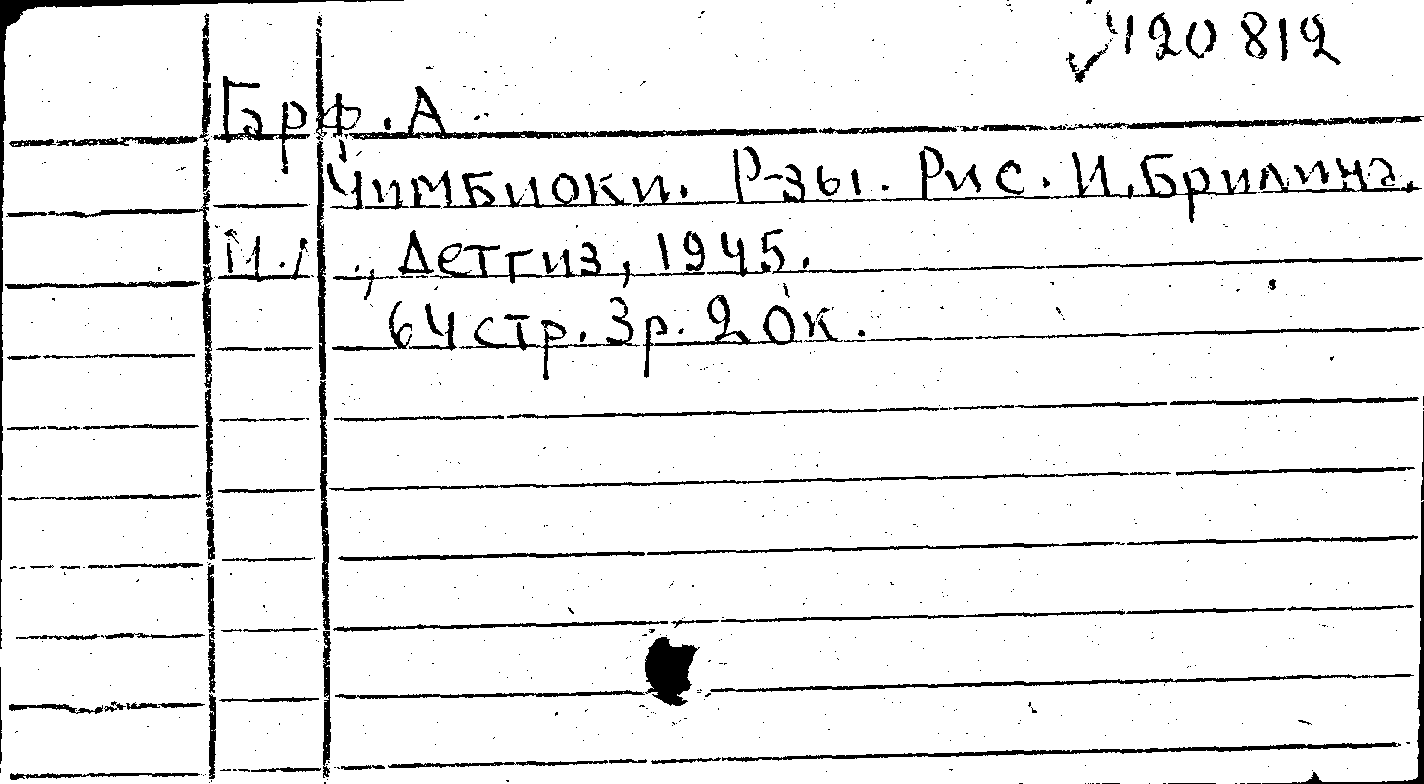 420 812
Гарф. А.
Чимбиоки. Р-зы. Рис. И. Брилинг.
М.Л., Детгиз, 1945.
64 стр. 3р. 20к.